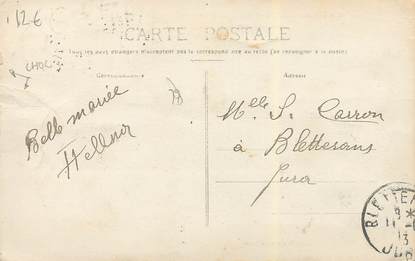 12€
CHOC
CARTE POSTALE
Tous les pays étrangers n'acceptent pas la correspondance au recto (se renseigner à la poste)
Correspondance
Adresse
Belle mariée
Mlle S. Carron
à Bletterans
Jura
BLETTERA
8 *
11
13
JURA